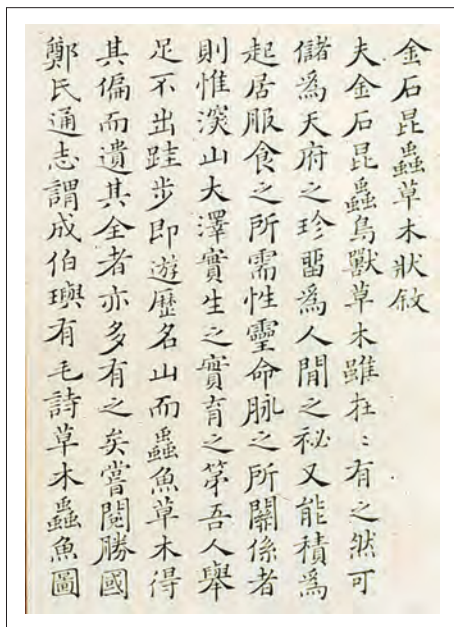 金石昆蟲草木狀敘
夫金石昆蟲鳥獸草木雖在〻有之然可
儲爲天府之珍畱爲人閒之祕又能積爲
起居服食之所需性靈命脉之所關係者
則惟深山大澤實生之實育之第吾人舉
足不出跬步即遊歷名山而蟲魚草木得
其偏而遺其全者亦多有之矣嘗閱勝國
鄭氏通志謂成伯璵有毛詩草木蟲魚圖